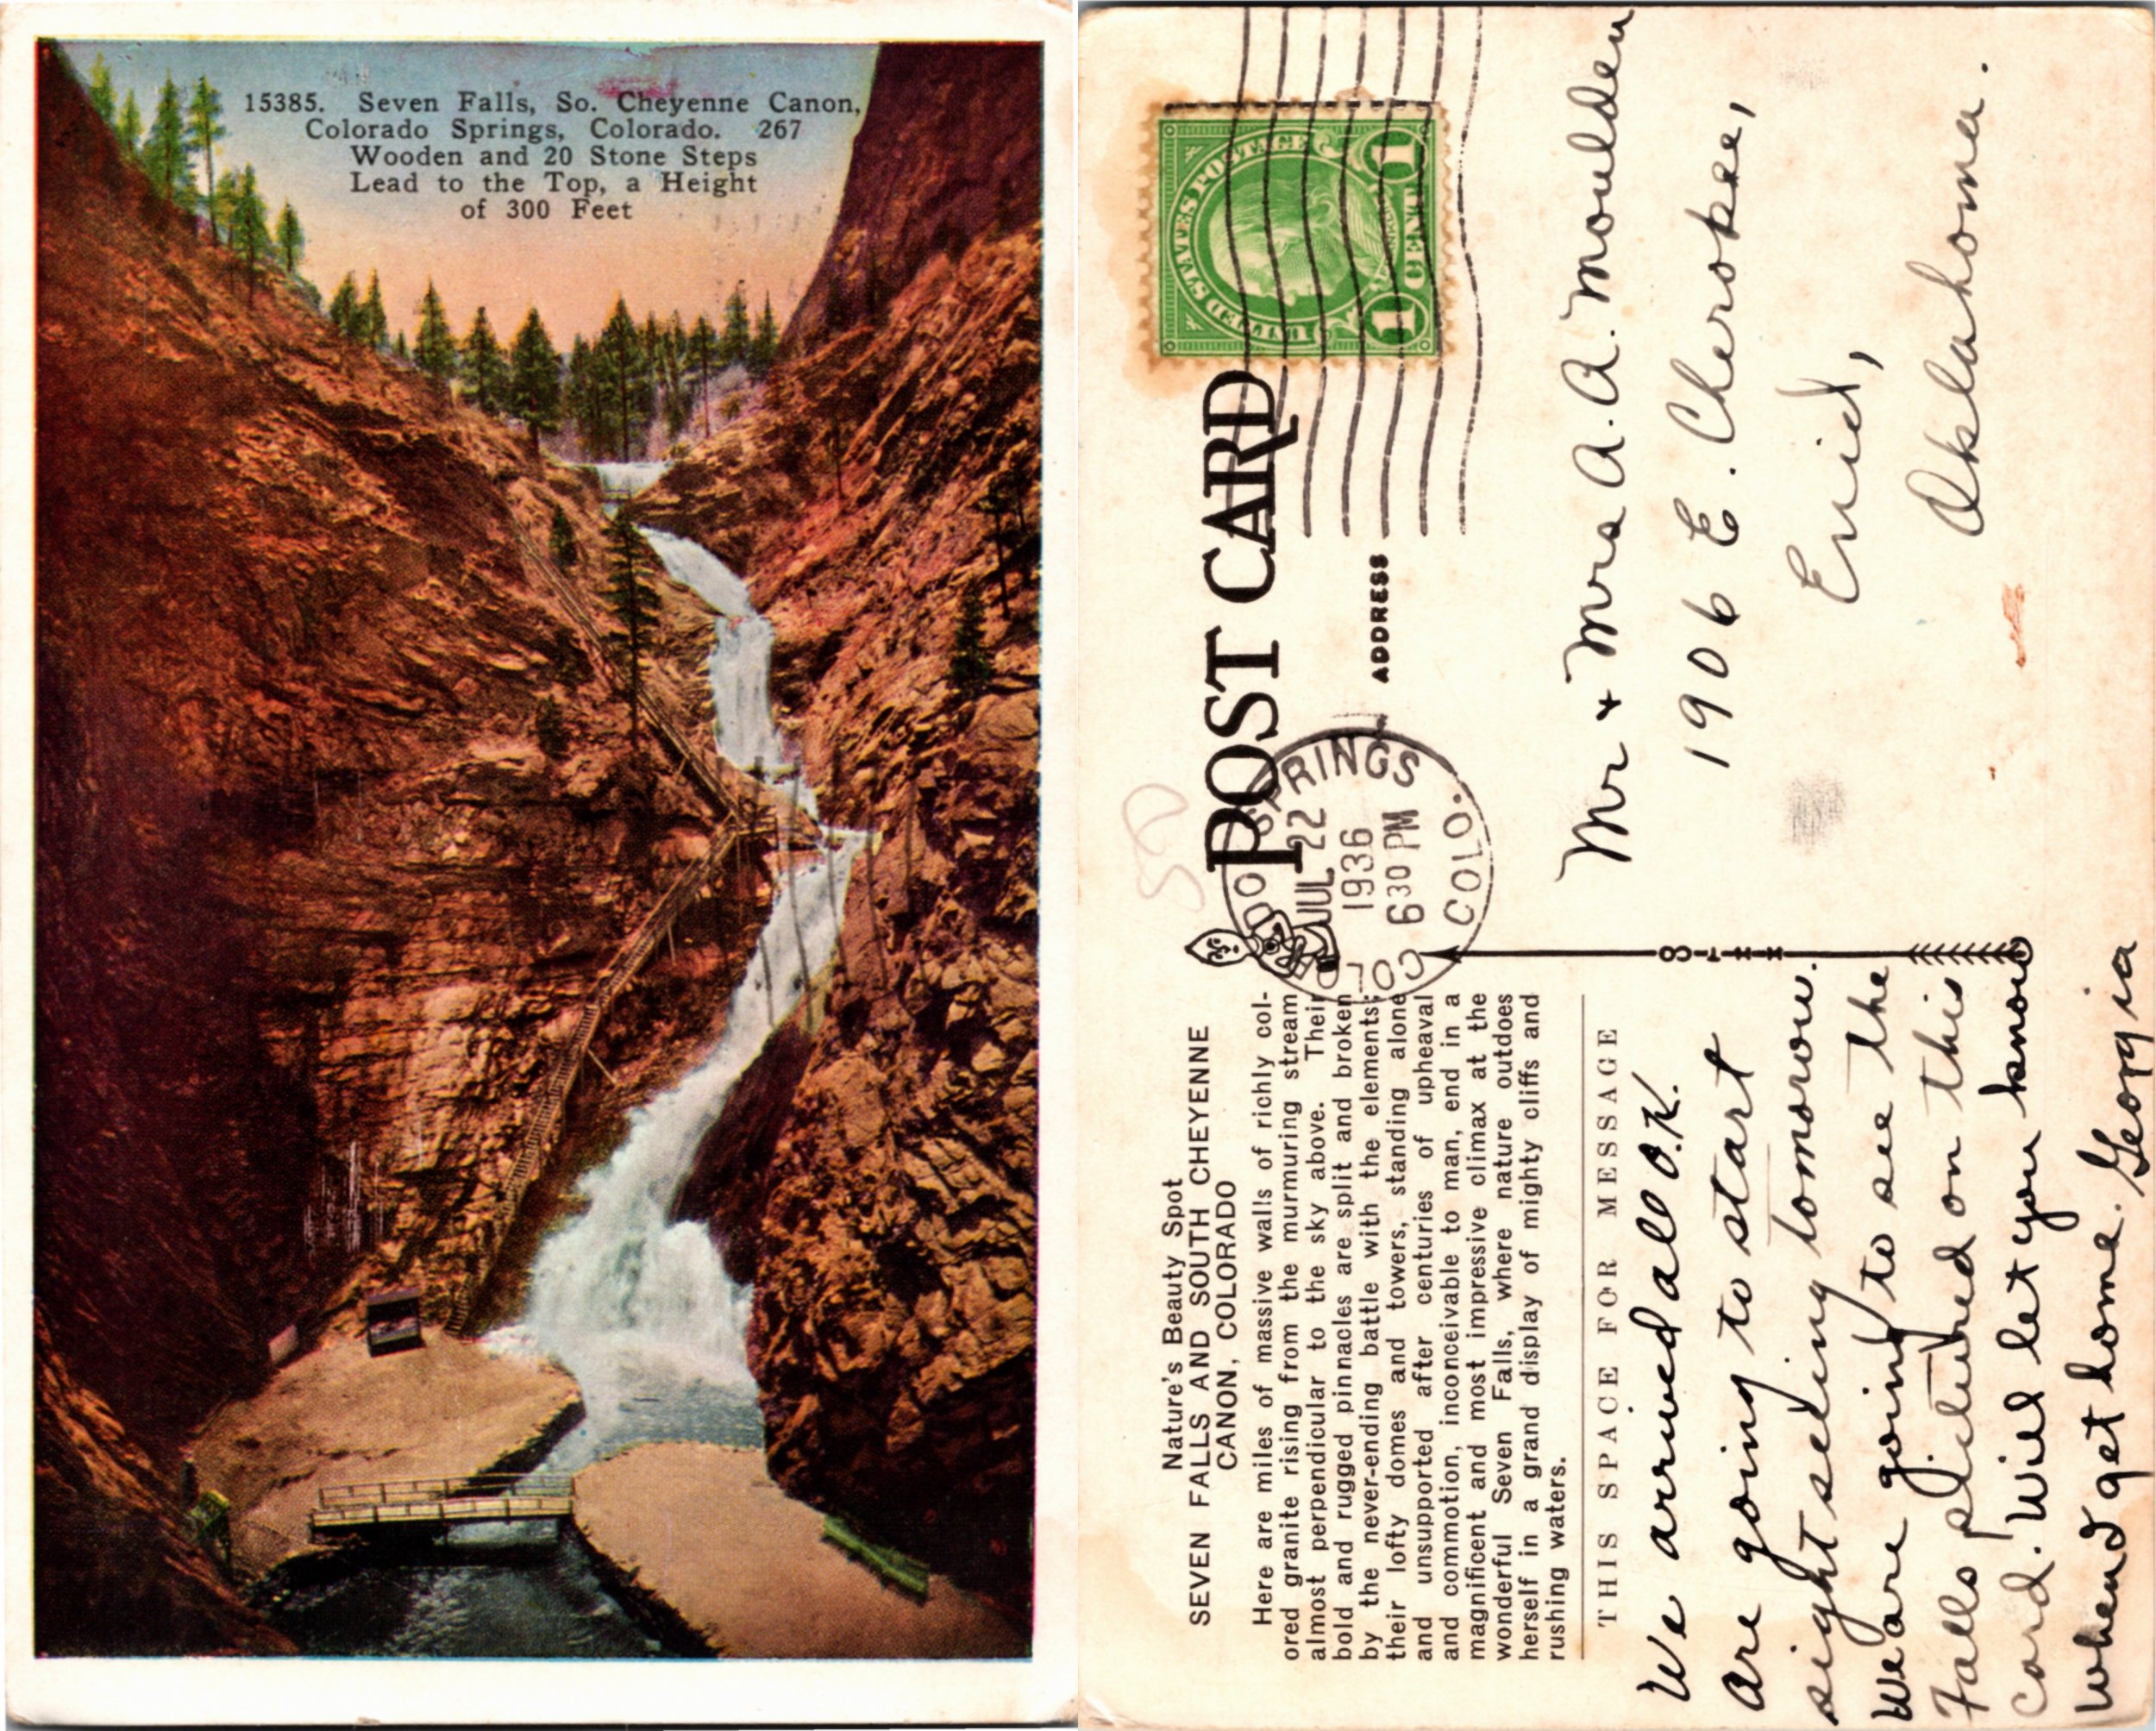 15385. Seven Falls, So. Cheyenne Canon,
Colorado Springs, Colorado. 267
Wooden and 20 Stone Steps
Lead to the Top, a Height
of 300 Feet
Nature's Beauty Spot
SEVEN FALLS AND SOUTH CHEYENNE
CANON, COLORADO
Here are miles of massive walls of richly col-
ored granite rising from the murmuring stream
almost perpendicular to the sky above. Their
bold and rugged pinnacles are split and broken
by the never-ending battle with the elements;
their lofty domes and towers, standing alone
and unsupported after centuries of upheaval
and commotion, inconceivable to man, end in a
magnificent and most impressive climax at the
wonderful Seven Falls, where nature outdoes
herself in a grand display of mighty cliffs and
rushing waters.
THIS SPACE FOR MESSAGE
We arrived all O.K.
Are going to start
sight seeing tomorow.
We are going to see the
Falls pictured on this
card. Will let you know
when I get home. Georgia
POST CARD
ADDRESS
COLORADO SPRINGS
JUL 22
1936
630 PM
COLO.
UNITED STATES POSTAGE
FRANKLIN
1 CENT 1
H-H-T-CO
Mr + Mrs A. A. Moulden
1906 E. Cherokee,
Enid,
Oklahoma.